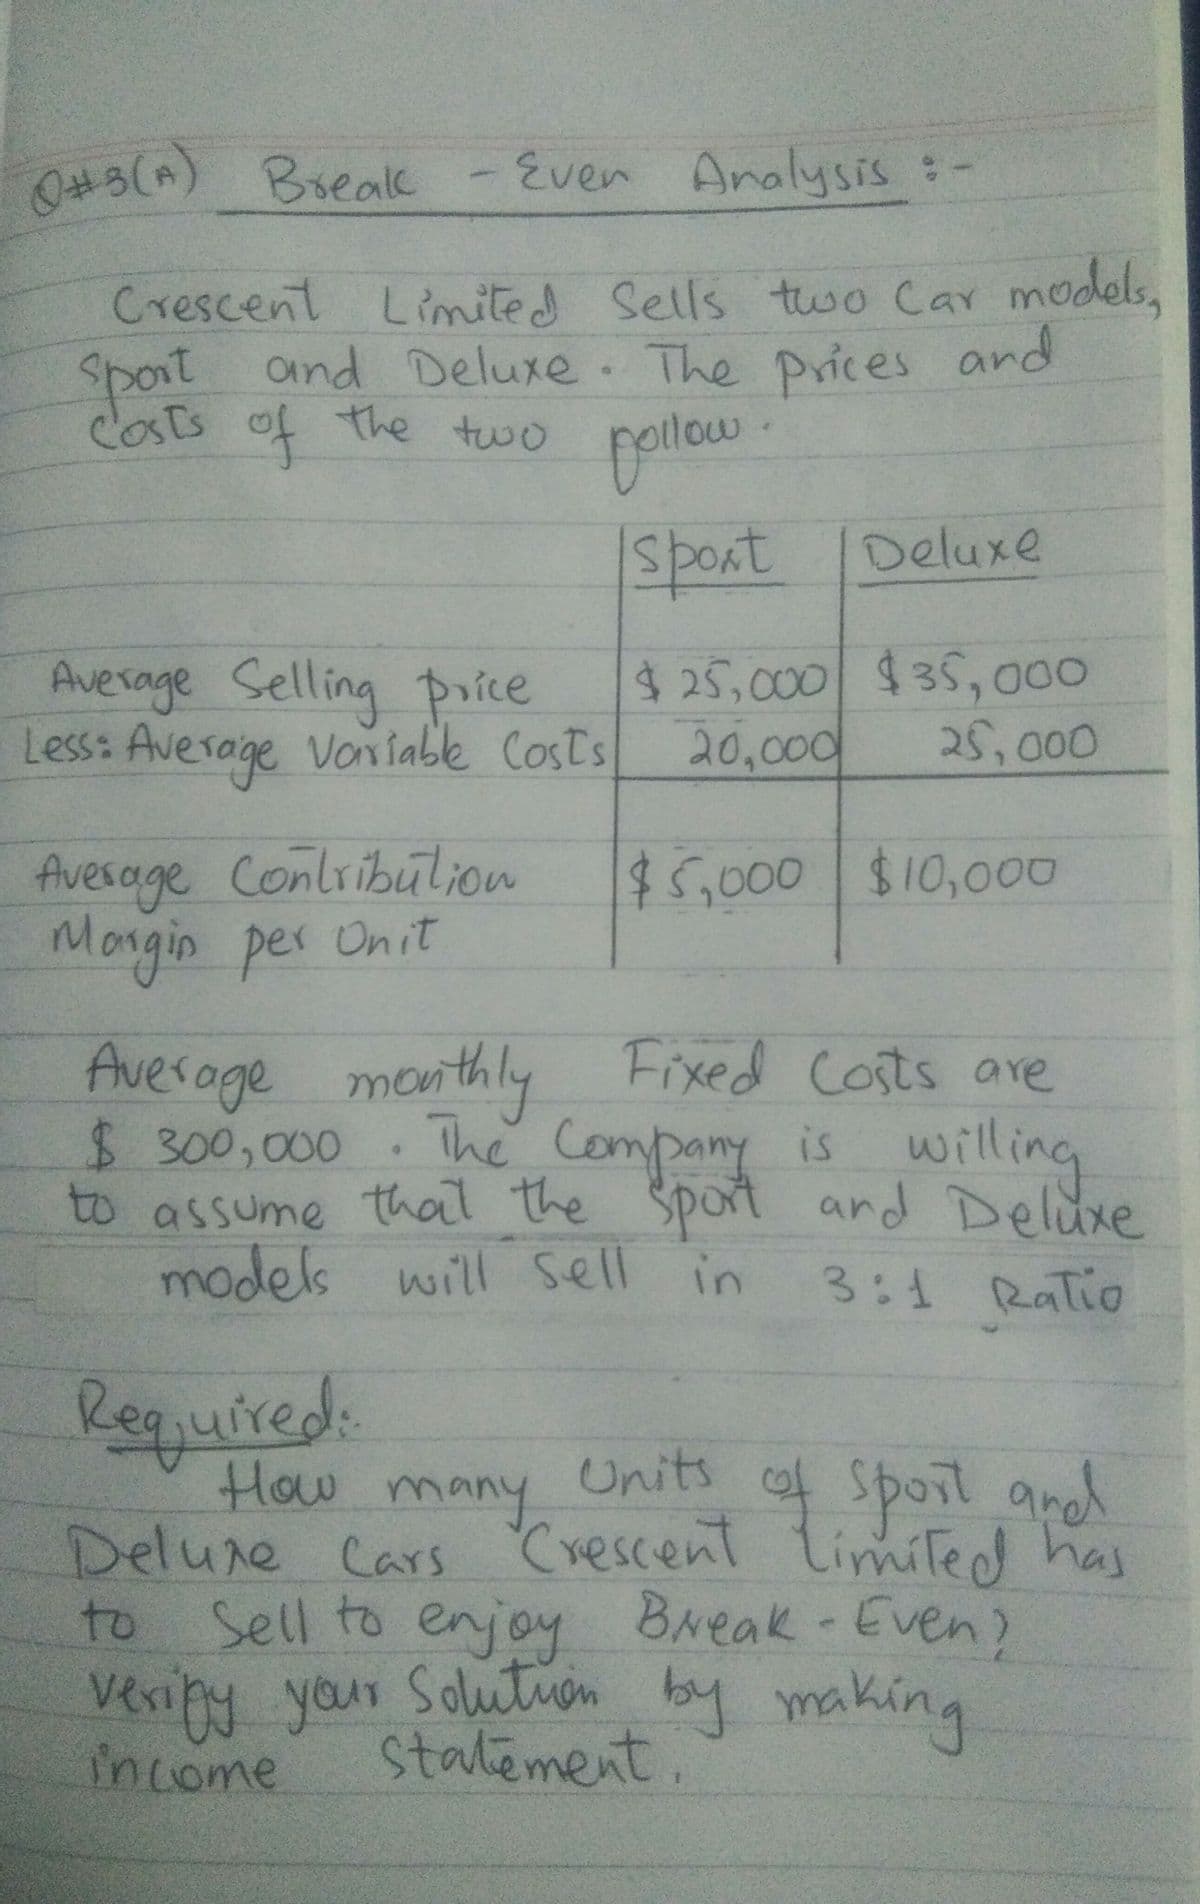 Q#3(A) Break - Even Analysis :-
Crescent Limited Sells two Car models,
Sport and Deluxe. The prices and
Costs of the two follow.
Sport Deluxe
Average Selling price $ 25,000 $35,000
Less: Average Variable Costs 20,000 25,000
Average Contribution $5,000 $10,000
Margin per Unit
Average monthly Fixed Costs are
$ 300,000. The Company is willing
to assume that the Sport and Deluxe
models will sell in 3:1 Ratio
Required:
How many Units of Sport and
Deluxe Cars Crescent Limited has
to Sell to enjoy Break-Even?
Verify your Solution by making
income Statement.